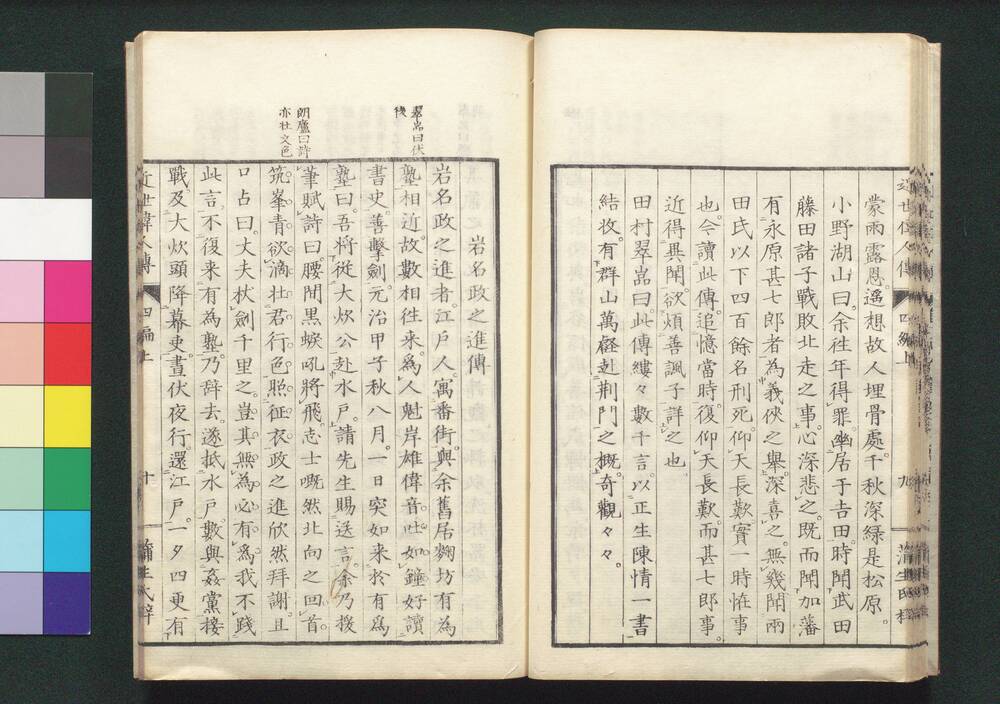 蒙雨露恩。遥想故人埋骨處。千秋深綠是松原。
小野湖山曰。余往年得罪。幽居于吉田。時聞武田
藤田諸子戰敗北走之事。心深悲之。既而聞加藩
有永原甚七郎者。為義俠之舉。深喜之。無幾聞兩
田氏以下四百餘名刑死。仰天長歎。實一時恠事
也。今讀此傳。追憶當時。復仰天長歎。而甚七郎事。
近得異聞。欲煩善諷子詳之也
田村翠嵓曰。此傳縷々數千言。以正生陳情一書
結收。有群山萬壑赴荆門之概。奇觀々々。
近世偉人傳
四編上
九
蒲生氏梓
岩名政之進傳
岩名政之進者。江戶人。寓番街。與余舊居麴坊有為
塾相近。故數相徃來。為人魁岸雄偉。音吐如鐘。好讀
書史。善擊劍。元治甲子秋八月。一日突如来於有為
塾曰。吾將從大炊公赴水戶。請先生賜送言。余乃援
筆賦詩曰。腰間黒蜧吼將飛。志士嘅然北向之。回首
筑峯青欲滴。壮君行色照征衣。政之進欣然拜謝。且
口占曰。丈夫杖劍千里之。豈其無為必有為。我不踐
此言。不復来有為塾。乃辞去。遂抵水戶。數與姦黨接
戰。及大炊頭降幕吏。晝伏夜行。還江戶。一夕四更有
翠嵓曰伏
後
朗廬曰詩
亦壮文色
近世偉人傳
四編上
十
蒲生氏梓